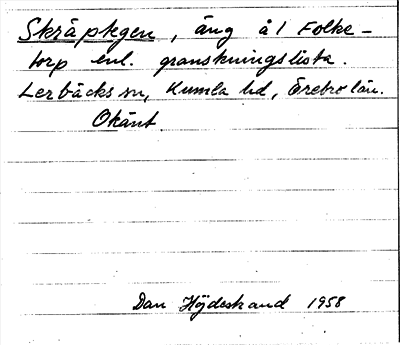 Skräpkgen, äng å 1 Folke-
torp enl. granskningslista.
Lerbäcks sn, Kumla hd, Örebro län.
Okänt.
Dan Höjdestrand 1958